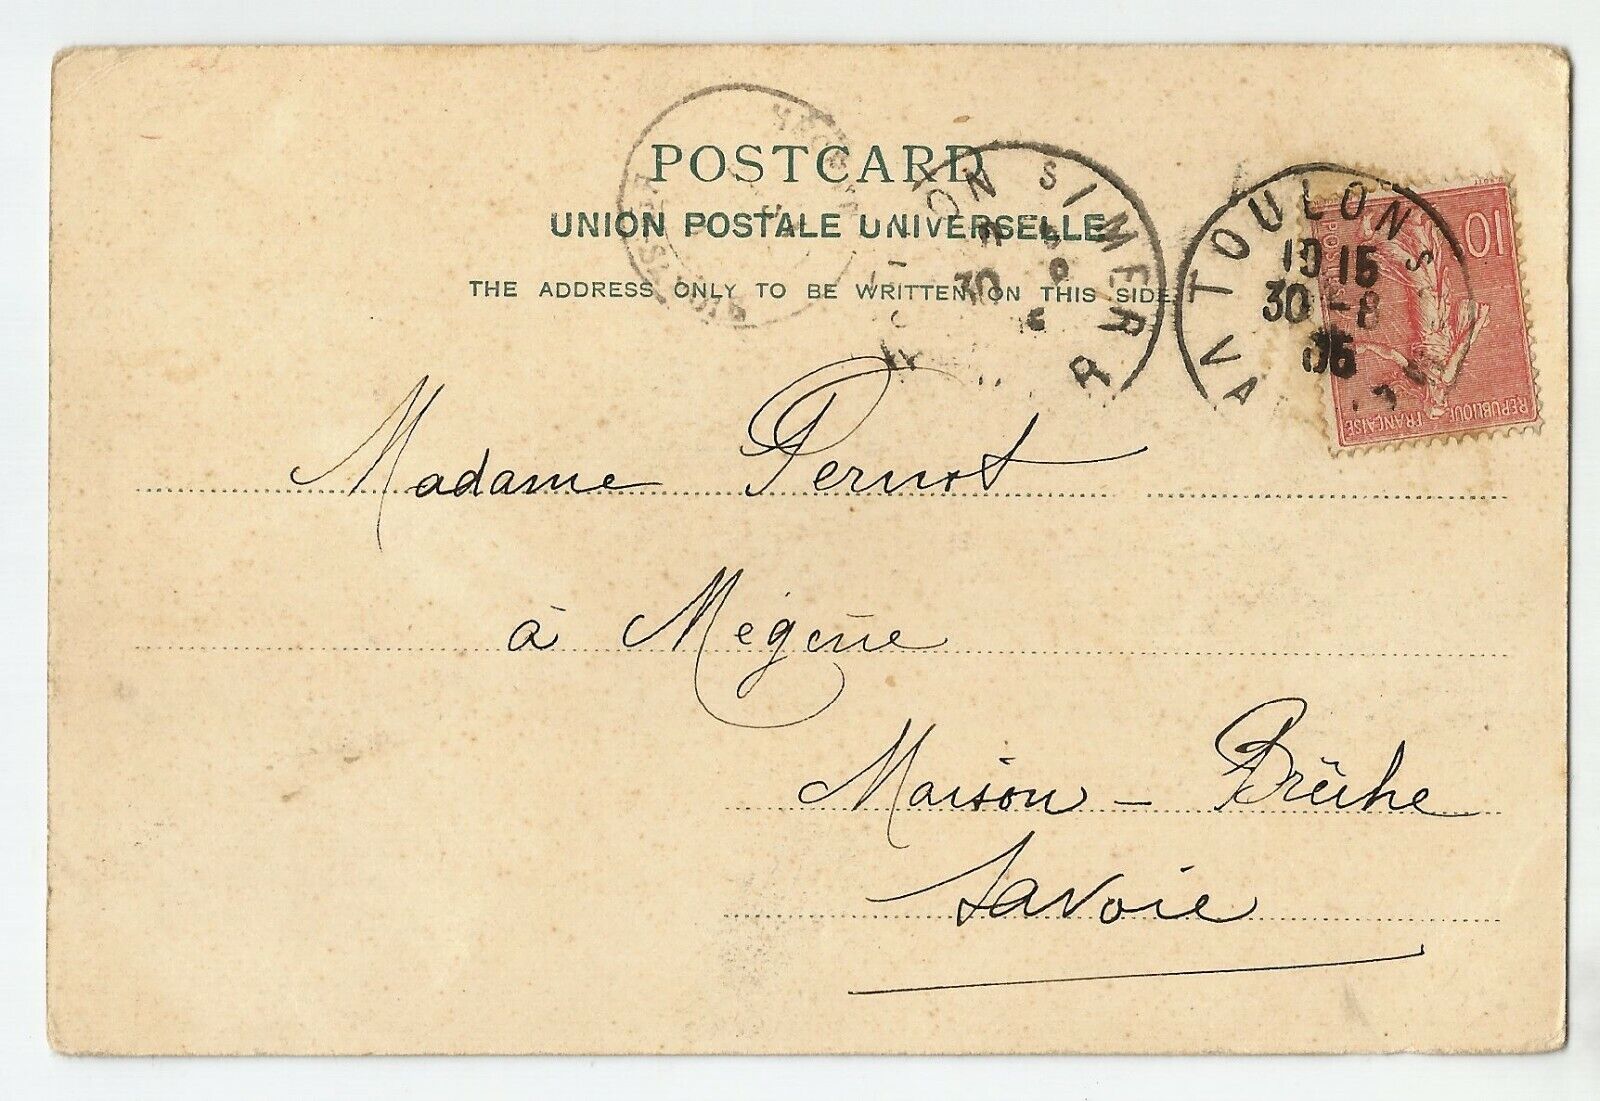 POSTCARD
UNION POSTALE UNIVERSELLE
THE ADDRESS ONLY TO BE WRITTEN ON THIS SIDE
TOULON S MER
TOULON S
19 15
30 - 8
05
VAR
10
POSTES
REPUBLIQUE FRANÇAISE
Madame Pernot
à Mégève
Maison - Brèche
Savoie